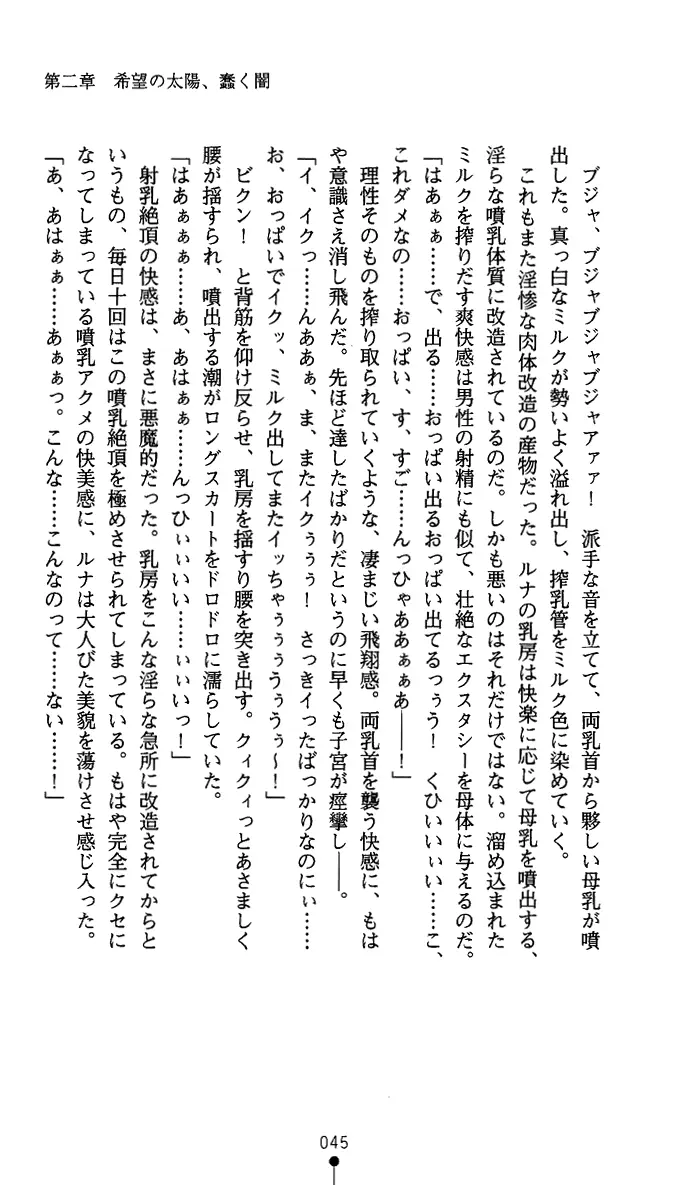 第二章　希望の太陽、蠢く闇
　ブジャ、ブジャブジャブジャアァァ！　派手な音を立てて、両乳首から夥しい母乳が噴
出した。真っ白なミルクが勢いよく溢れ出し、搾乳管をミルク色に染めていく。
　これもまた淫惨な肉体改造の産物だった。ルナの乳房は快楽に応じて母乳を噴出する、
淫らな噴乳体質に改造されているのだ。しかも悪いのはそれだけではない。溜め込まれた
ミルクを搾りだす爽快感は男性の射精にも似て、壮絶なエクスタシーを母体に与えるのだ。
「はあぁぁ……で、出る……おっぱい出るおっぱい出てるっぅう！　くひいいぃい……こ、
これダメなの……おっぱい、す、すご……んっひゃああぁぁあ――！」
　理性そのものを搾り取られていくような、凄まじい飛翔感。両乳首を襲う快感に、もは
や意識さえ消し飛んだ。先ほど達したばかりだというのに早くも子宮が痙攣し――。
「イ、イクっ……んああぁ、ま、またイクぅぅぅ！　さっきイったばっかりなのにぃ……
お、おっぱいでイクッ、ミルク出してまたイッちゃぅぅぅうぅうぅ～！」
　ビクン！　と背筋を仰け反らせ、乳房を揺すり腰を突き出す。クィクィっとあさましく
腰が揺すられ、噴出する潮がロングスカートをドロドロに濡らしていた。
「はあぁぁぁ……あ、あはぁぁ……んっひぃぃいい……ぃぃいっ！」
　射乳絶頂の快感は、まさに悪魔的だった。乳房をこんな淫らな急所に改造されてからと
いうもの、毎日十回はこの噴乳絶頂を極めさせられてしまっている。もはや完全にクセに
なってしまっている噴乳アクメの快美感に、ルナは大人びた美貌を蕩けさせ感じ入った。
「あ、あはぁぁ……あぁぁっ。こんな……こんなのって……ない……！」
045